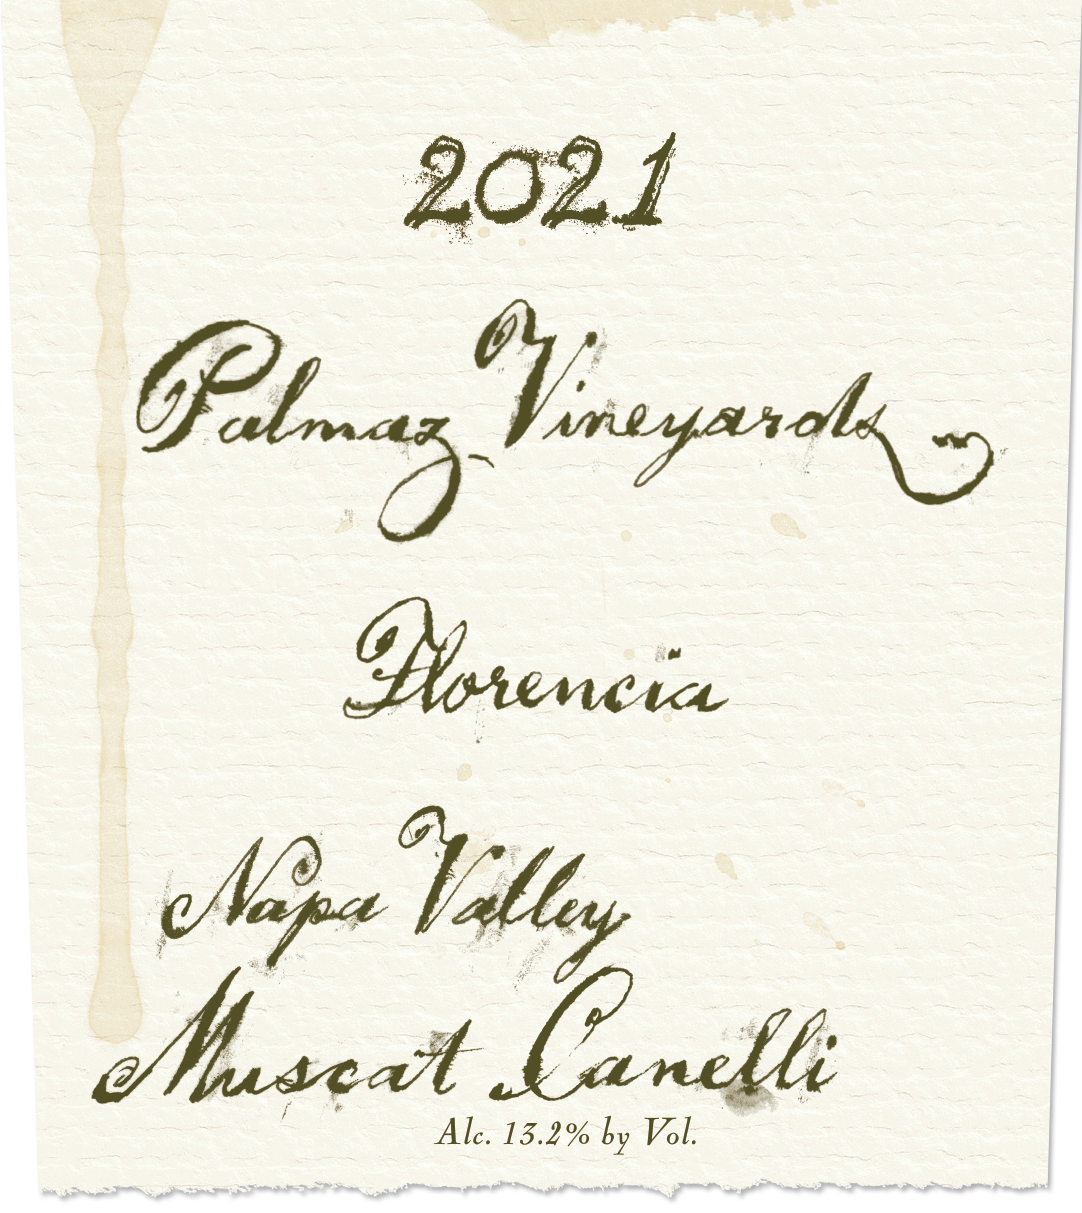 2021
Palmaz Vineyards
Florencia
Napa Valley
Muscat Canelli
Alc. 13.2% by Vol.